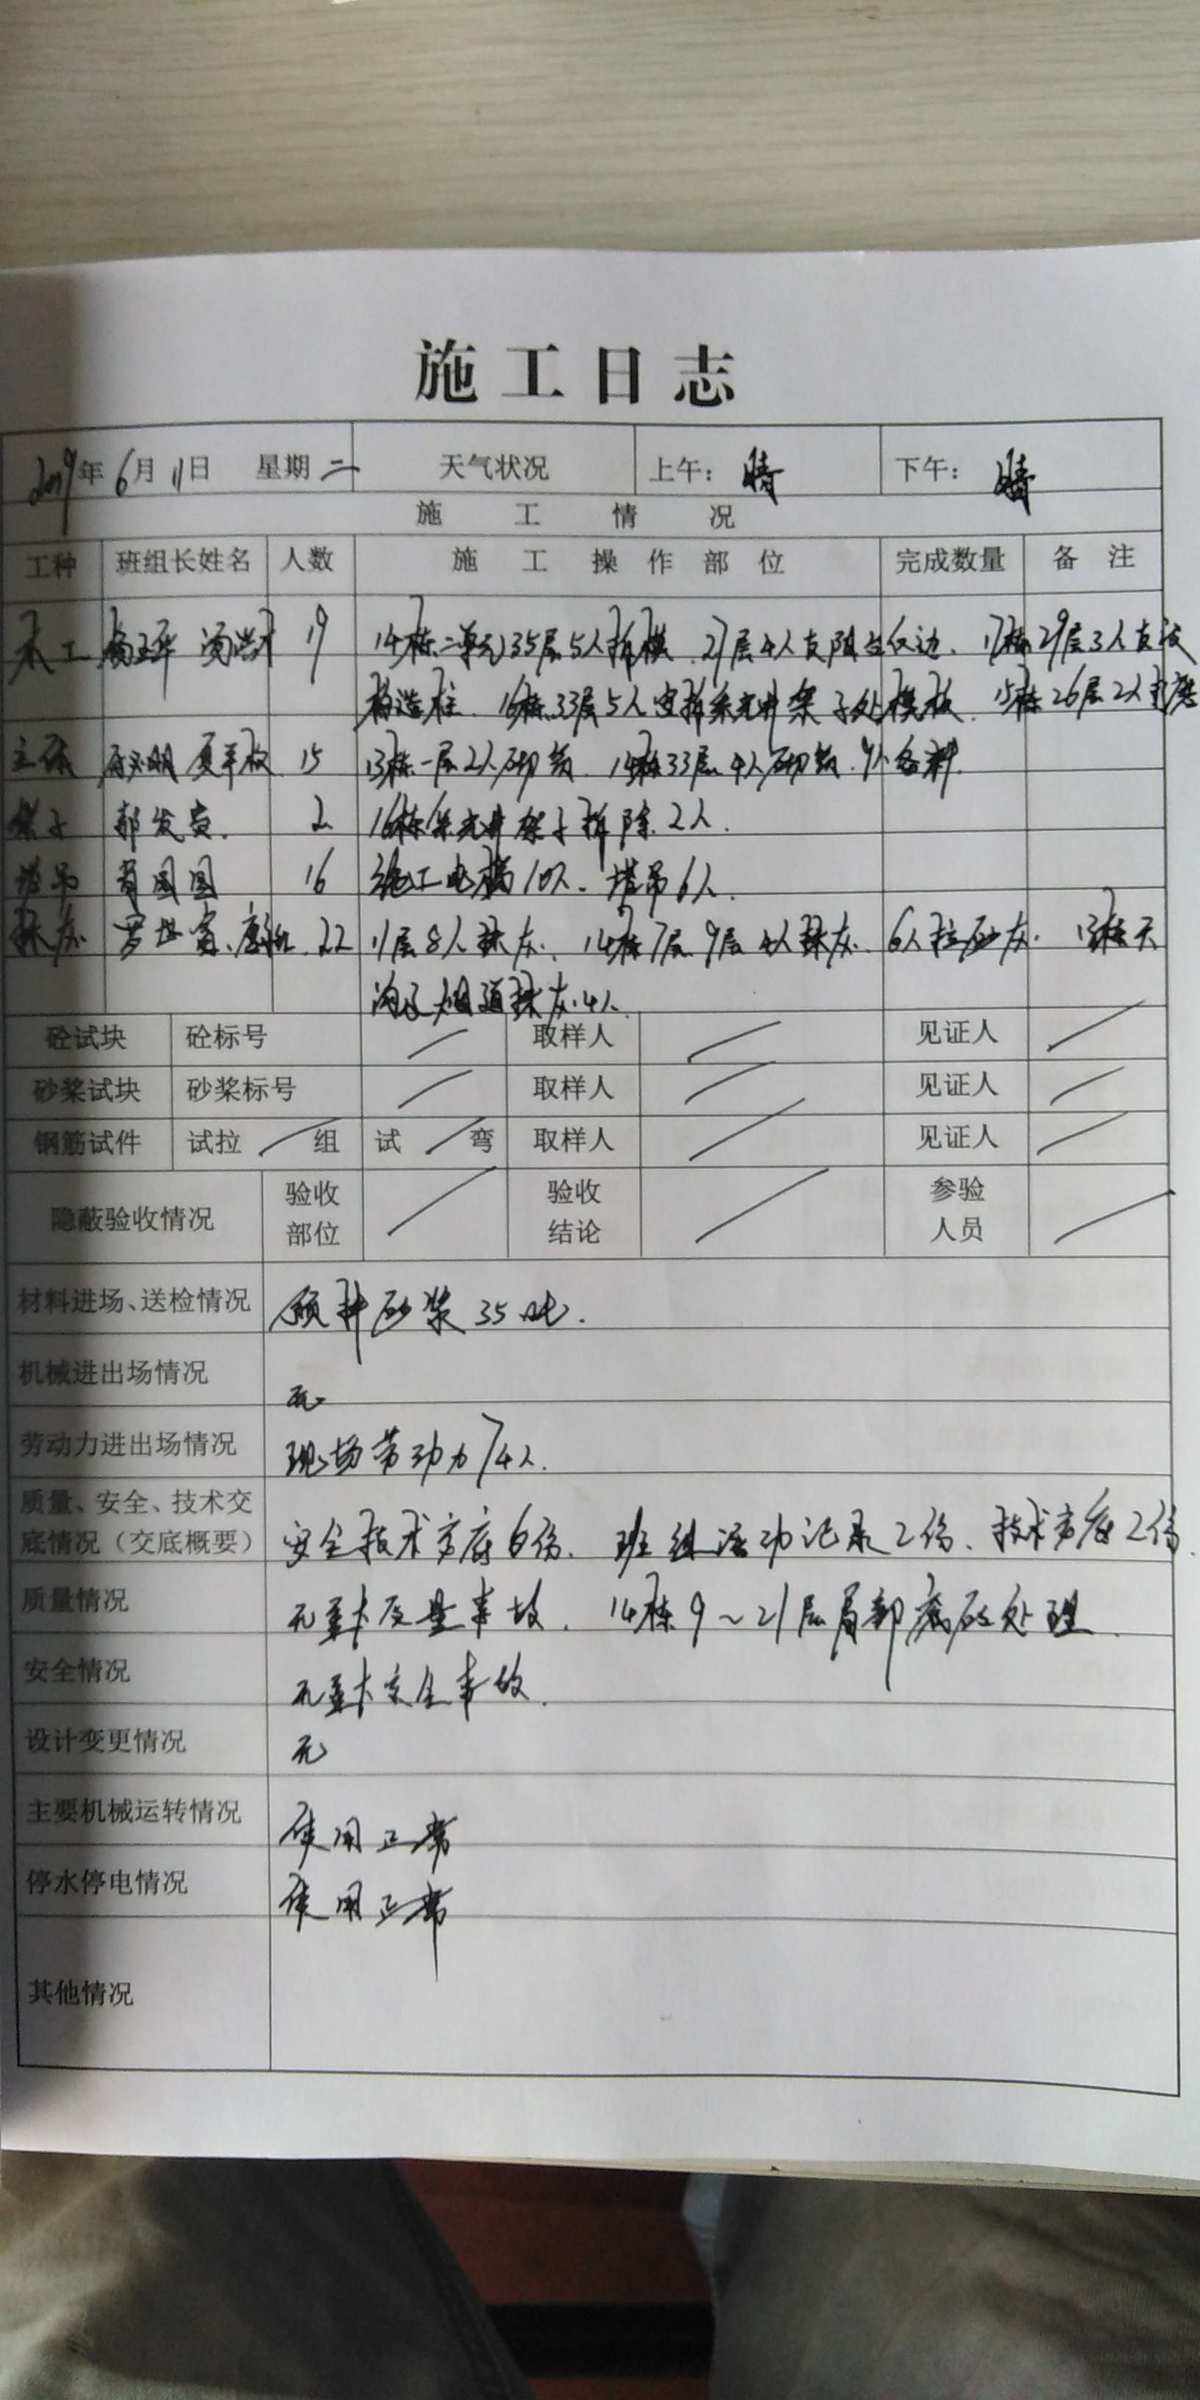 施工日志
2019年6月11日 星期二 天气状况 上午: 晴 下午: 晴
施工情况
工种 班组长姓名 人数 施工操作部位 完成数量 备注
木工 19 14栋二单元35层5人拆模、21层4人支阳台反边、17栋29层3人支设
构造柱、16栋33层5人 拆采光井架子处模板、15栋26层2人打磨
主体 15 13栋一层2人砌筑、14栋33层4人砌筑、9人备料.
架子 郭发贵 2 16栋采光井架子拆除2人.
塔吊 肖国国 16 施工电梯10人、塔吊6人.
抹灰 罗世富、 22 11层8人抹灰、14栋7层9层4人抹灰、6人拉砂灰、13栋天
沟及烟道抹灰4人.
砼试块 砼标号 / 取样人 / 见证人 /
砂桨试块 砂桨标号 / 取样人 / 见证人 /
钢筋试件 试拉 / 组 试 / 弯 取样人 / 见证人 /
隐蔽验收情况 验收部位 / 验收结论 / 参验人员 /
材料进场、送检情况 预拌砂浆35吨.
机械进出场情况 无
劳动力进出场情况 现场劳动力74人.
质量、安全、技术交
底情况（交底概要） 安全技术交底6份、班组活动记录2份、技术交底2份.
质量情况 无重大质量事故、14栋9~21层局部 处理.
安全情况 无重大安全事故.
设计变更情况 无
主要机械运转情况 使用正常
停水停电情况 使用正常
其他情况